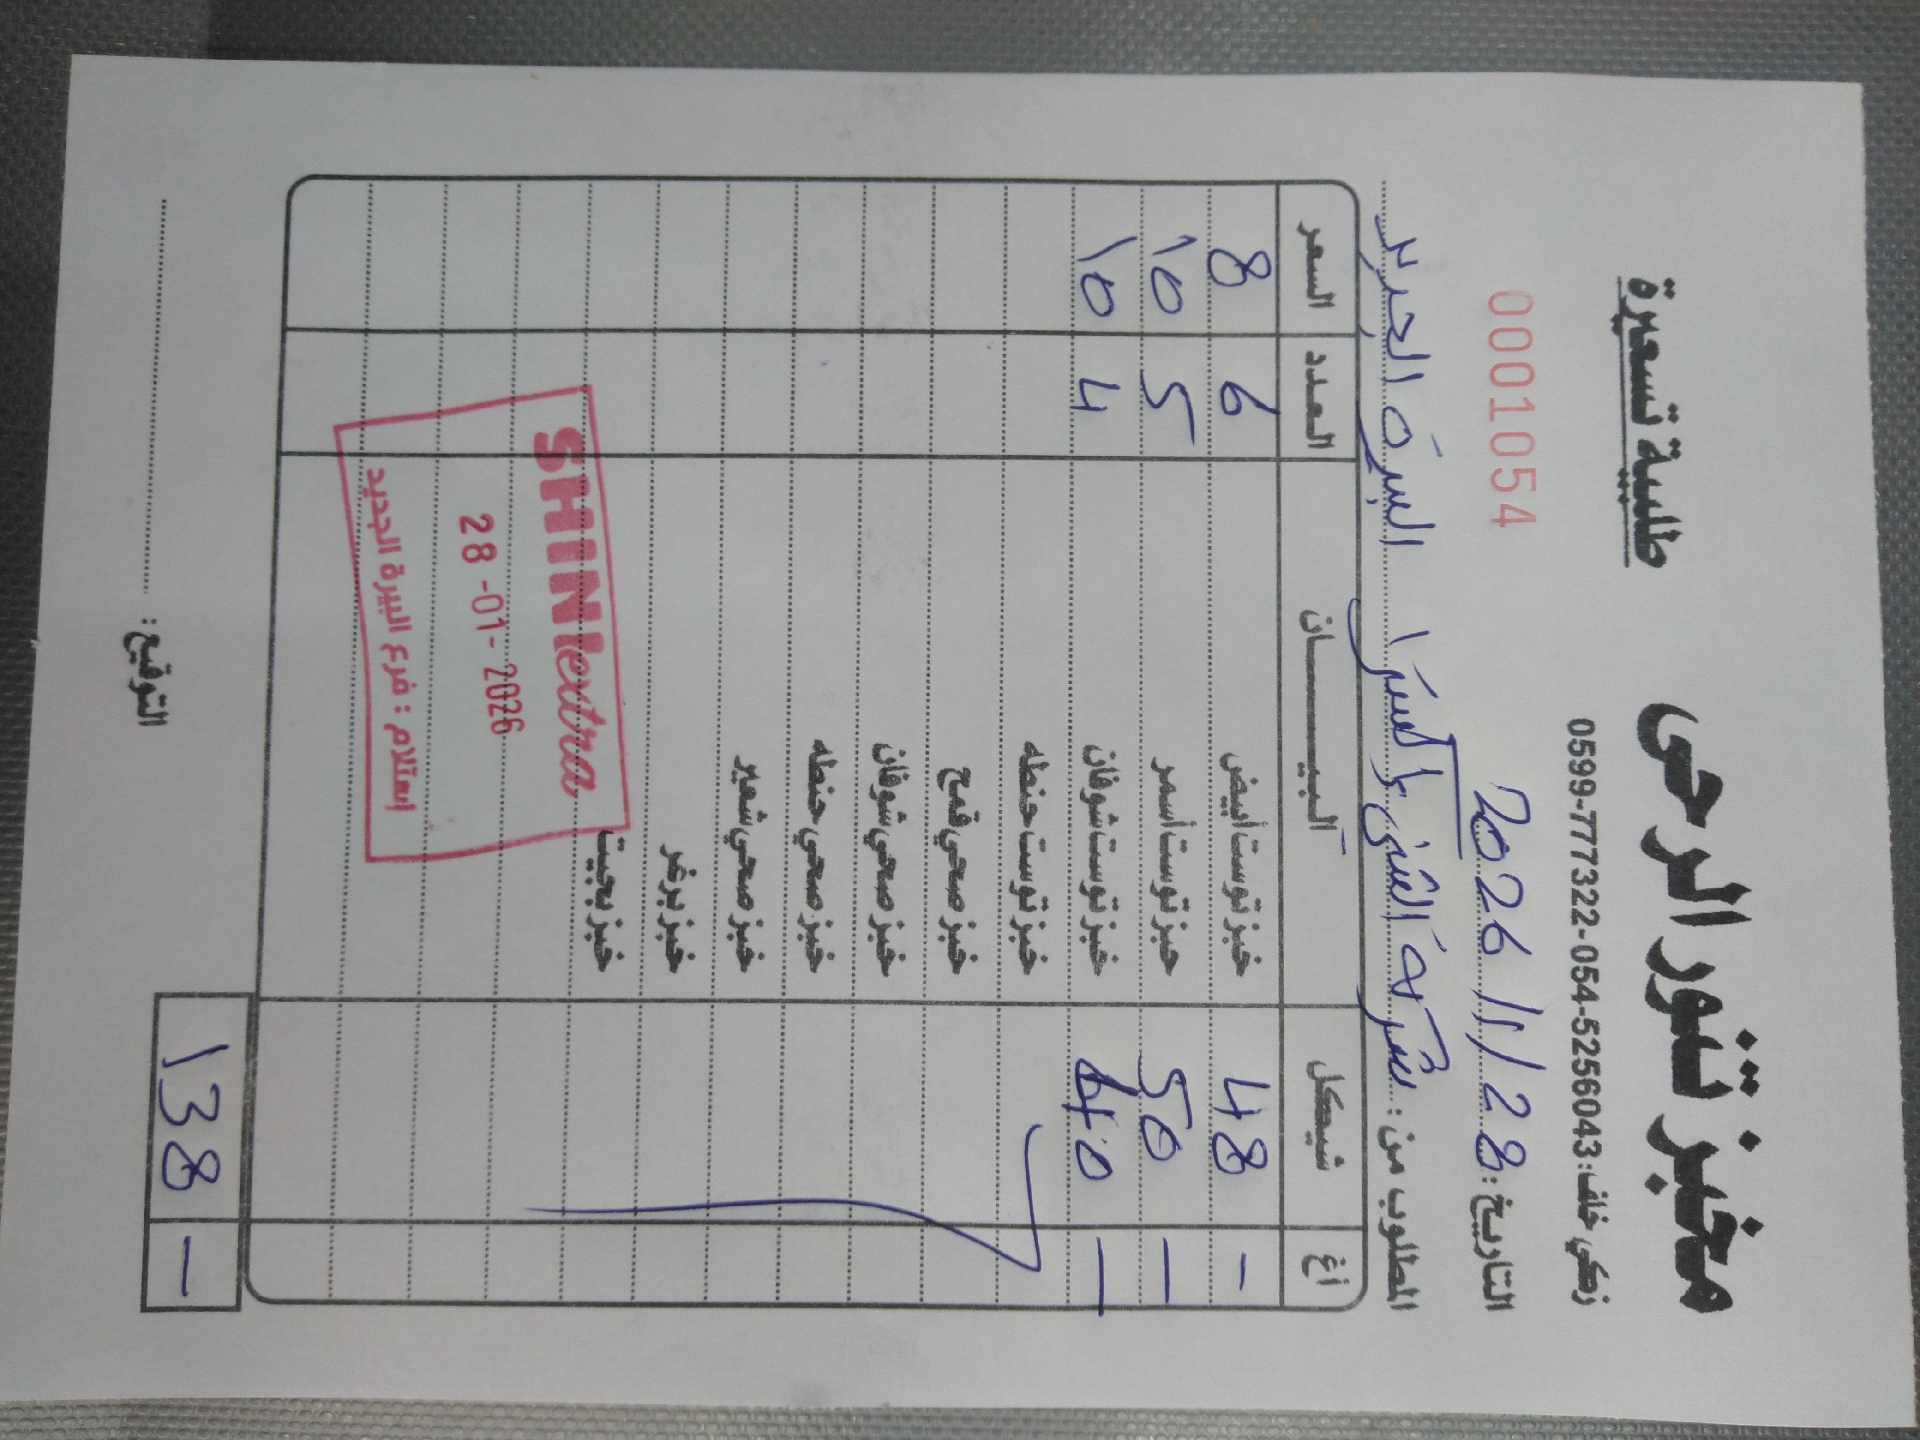 مخبز تنور الرحى
طلبية تسعيرة
زكي خلف: 0599-777322-054-5256043
0001054
التاريخ: 2026/1/28
المطلوب من: شركة الشني اكسترا البيرة الجديد
أغ شيكل البيــــــان العدد السعر
- 48 خبز توست أبيض 6 8
- 50 خبز توست أسمر 5 10
- 40 خبز توست شوفان 4 10
خبز توست حنطه
خبز صحي قمح
خبز صحي شوفان
خبز صحي حنطه
خبز صحي شعير
خبز برغر
خبز بجيت
SHINIextra
28-01-2026
استلام : فرع البيرة الجديد
138 -
التوقيع: